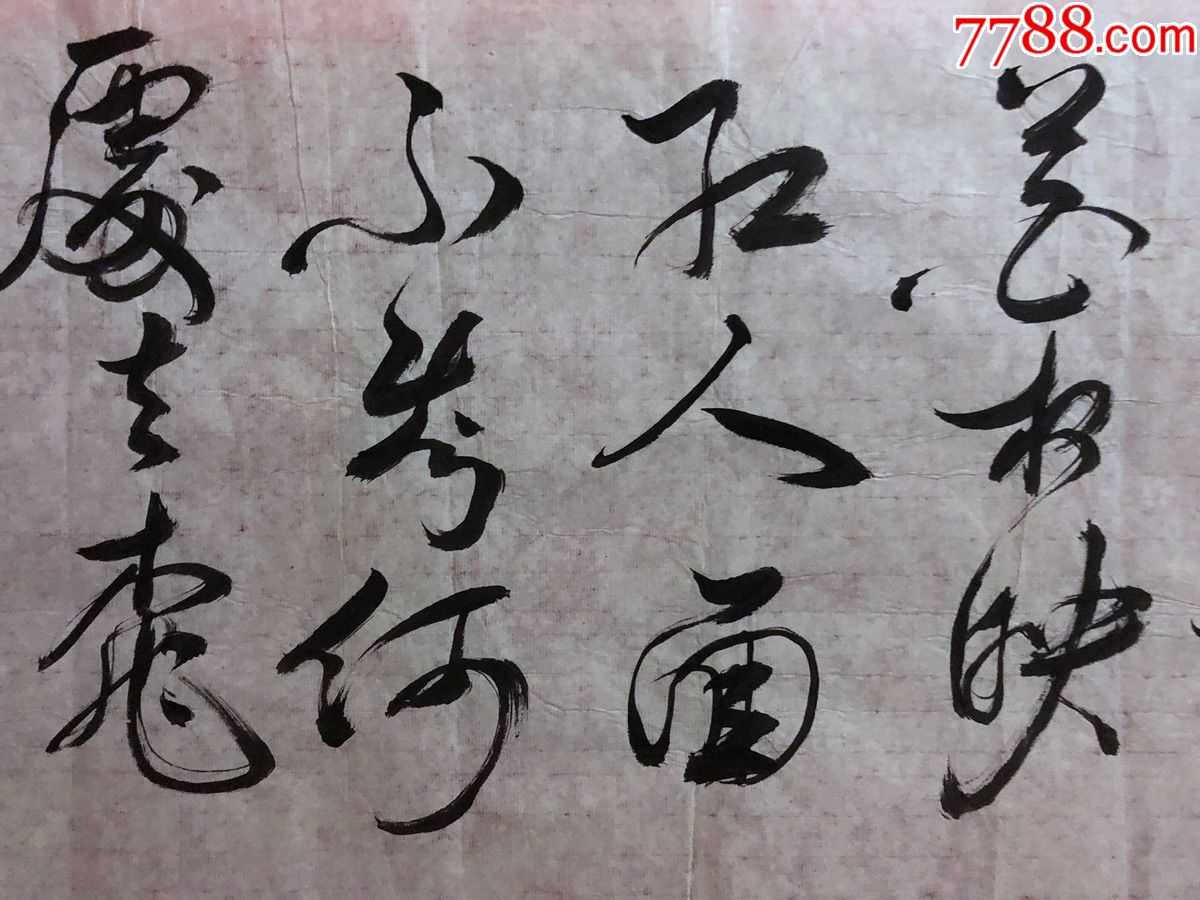 7788.com
花相映
红人面
不知何
處去桃